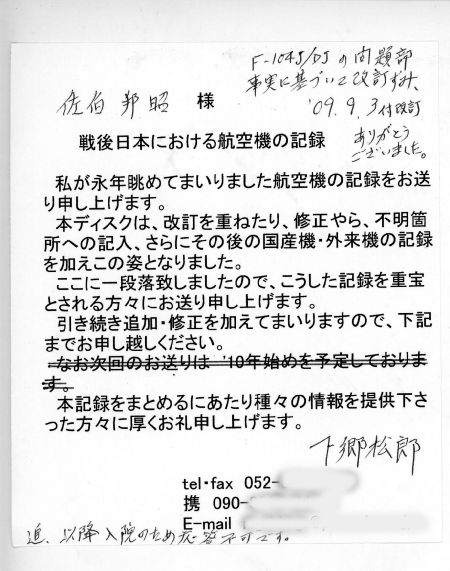 F-104J/DJの問題部
事実に基づいて改訂ずみ、
'09.9.3付改訂
ありがとう
ございました。
佐伯邦昭 様
戦後日本における航空機の記録
私が永年眺めてまいりました航空機の記録をお送
り申し上げます。
本ディスクは、改訂を重ねたり、修正やら、不明箇
所への記入、さらにその後の国産機・外来機の記録
を加えこの姿となりました。
ここに一段落致しましたので、こうした記録を重宝
とされる方々にお送り申し上げます。
引き続き追加・修正を加えてまいりますので、下記
までお申し越しください。
なお次回のお送りは '10年始めを予定しておりま
す。
本記録をまとめるにあたり種々の情報を提供下さ
った方々に厚くお礼申し上げます。
下郷松郎
tel・fax 052-
携 090-
E-mail
追、以降入院のため応答不可です。